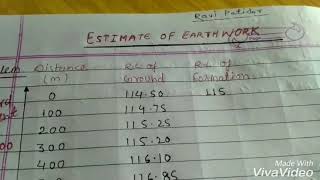 Ravi Patidar
ESTIMATE OF EARTHWORK
Distance (m) R.L. of Ground R.L. of Formation
0 114.50 115
100 114.75
200 115.25
300 115.20
400 116.10
116.85
Made With
VivaVideo